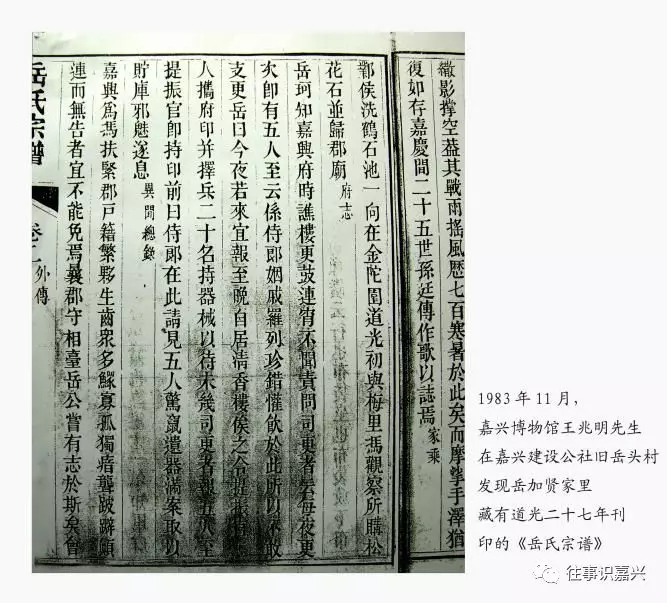 緻影撐空蓋其戰雨搖風歷七百寒暑於此矣而摩挲手澤猶
復如存嘉慶間二十五世孫廷傳作歌以誌焉 家乘
鄿侯洗鶴石池一向在金陀園道光初與梅里馮觀察所購松
花石並歸郡廟 府志
岳珂知嘉興府時譙樓更鼓連宵不聞責問司更者云每夜更
次即有五人至云係侍郎姻戚羅列珍錯懽飲於此所以不敢
支更岳曰今夜若來宜報至晚自居清香樓俟之令提振
人攜府印并擇兵二十名持器械以待未幾司更者報五人至
提振官即持印前曰侍郎在此請見五人驚竄遺器滿案取以
貯庫邪魅遂息 異聞總錄
嘉興為馮扶緊郡戶籍繁夥生齒眾多鰥寡孤獨瘖聾跛躃顛
連而無告者宜不能免焉曩郡守相臺岳公嘗有志於斯矣曾
岳氏宗譜
卷十一 外傳
1983年11月，
嘉兴博物馆王兆明先生
在嘉兴建设公社旧岳头村
发现岳加贤家里
藏有道光二十七年刊
印的《岳氏宗谱》
往事识嘉兴